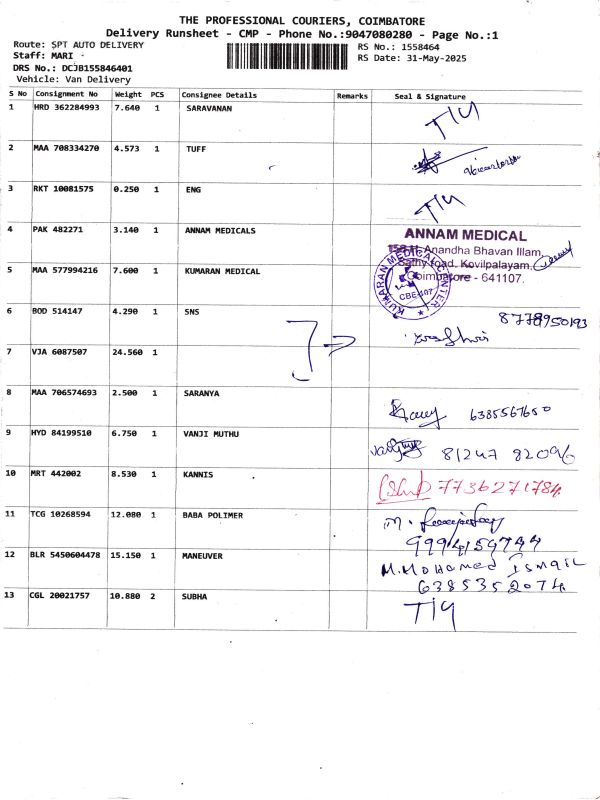 THE PROFESSIONAL COURIERS, COIMBATORE
Delivery Runsheet - CMP - Phone No.:9047080280 - Page No.:1
Route: SPT AUTO DELIVERY
Staff: MARI
DRS No.: DCJB155846401
Vehicle: Van Delivery
RS No.: 1558464
RS Date: 31-May-2025
S No Consignment No Weight PCS Consignee Details Remarks Seal & Signature
1 HRD 362284993 7.640 1 SARAVANAN T/4
2 MAA 708334270 4.573 1 TUFF
3 RKT 10081575 0.250 1 ENG T/4
4 PAK 482271 3.140 1 ANNAM MEDICALS
ANNAM MEDICAL
Anandha Bhavan Illam,
Sathy road, Kovilpalayam,
Coimbatore - 641107.
5 MAA 577994216 7.600 1 KUMARAN MEDICAL
KUMARAN MEDICAL CENTER
CBE-107
6 BOD 514147 4.290 1 SNS 8778950193
7 VJA 6087507 24.560 1
8 MAA 706574693 2.500 1 SARANYA 6385567650
9 HYD 84199510 6.750 1 VANJI MUTHU 81247 82096
10 MRT 442002 8.530 1 KANNIS 7736271784
11 TCG 10268594 12.080 1 BABA POLIMER M.
9994159744
12 BLR 5450604478 15.150 1 MANEUVER M.MOHAMED ISMAIL
6385352074
13 CGL 20021757 10.880 2 SUBHA T/4